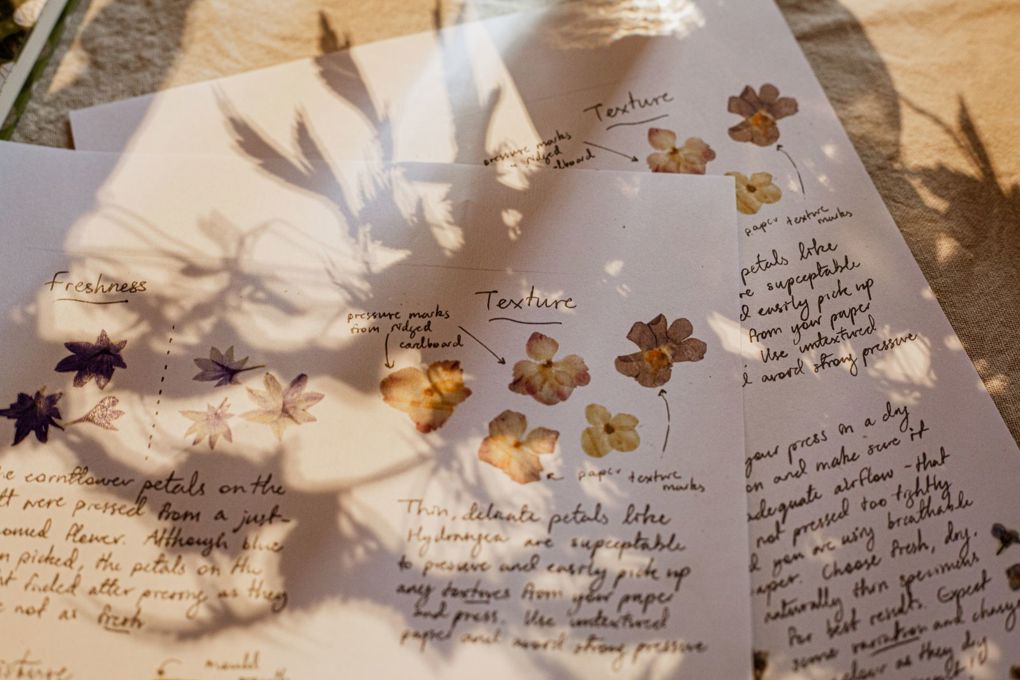 Freshness
he cornflower petals on the
ft were pressed from a just-
oomed flower. Although blue
n picked, the petals on the
t faded after pressing as they
e not as fresh
mould
Texture
pressure marks
from ridged
cardboard
paper texture
marks
Thin, delicate petals like
Hydrangea are supceptable
to pressure and easily pick up
any textures from your paper
and press. Use untextured
paper and avoid strong pressive
Texture
pressure marks
ridged
rdboard
paper texture
marks
petals like
re supceptable
d easily pick up
from your paper
. Use untextured
d avoid strong pressive
your press in a dry
on and make sure it
adequate airflow - that
not pressed too tightly
d you are using breathable
aper. Choose fresh, dry,
naturally thin specimens
for best results. Expect
some variation and change
colour as they dry